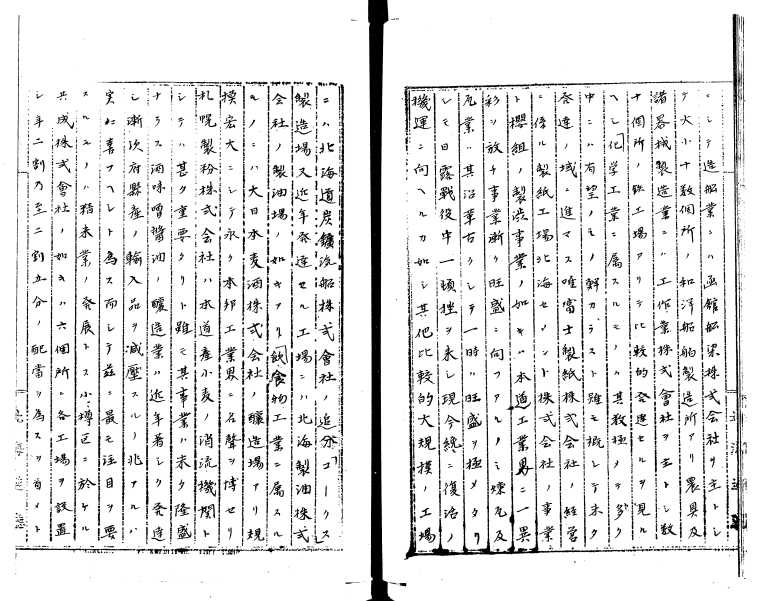 ニシテ造船業ニハ函館船渠株式会社ヲ主トシ
テ大小十数個所ノ和洋船舶製造所アリ農具及
諸器械製造業ニハ工作業株式會社ヲ主トシ数
十個所ノ鉄工場アリテ比較的発達セルヲ見ル
ヘシ「化学工業ニ属スルモノハ其数極メテ多ク
中ニハ有望ノモノ尠カラスト雖モ概シテ未タ
発達ノ域ニ進マス唯富士製紙株式会社ノ経営
ニ係ル製紙工場北海セメント株式会社ノ事業
ト櫻組ノ製渋事業ノ如キハ本道工業界ニ一異
彩ヲ放チ事業漸ク旺盛ニ向ツツアルノミ煉瓦及
瓦業ハ其沿革古クシテ一時ハ旺盛ヲ極メタリ
シモ日露戦後中一頓挫ヲ来シ現今纔ニ復活ノ
機運ニ向ヘルカ如シ其他比較的大規模ノ工場
ニハ北海道炭鑛汽船株式會社ノ追分コークス
製造場又近年発達セル工場ニハ北海製油株式
会社ノ製油場ノ如キアリ「飲食物工業ニ属スル
ルノニハ大日本麦酒株式会社ノ醸造場アリ規
模宏大ニシテ永ク本邦工業界ニ名聲ヲ博セリ
札幌製粉株式会社ハ本道産小麦ノ消流機関ト
シテハ甚タ重要タリト雖モ其事業ハ未タ隆盛
ナラス酒味噌醤油ノ醸造業ハ近年著シク発達
シ漸次府縣産ノ輸入品ヲ減壓スルノ兆アルハ
実ニ喜フヘシト為ス而シテ茲ニ最モ注目ヲ要
スルモノハ精米業ノ発展トス小樽区ニ於ケル
共成株式會社ノ如キハ六個所ニ各工場ヲ設置
シ年二割乃至二割五分ノ配當ヲ為スヲ有メト